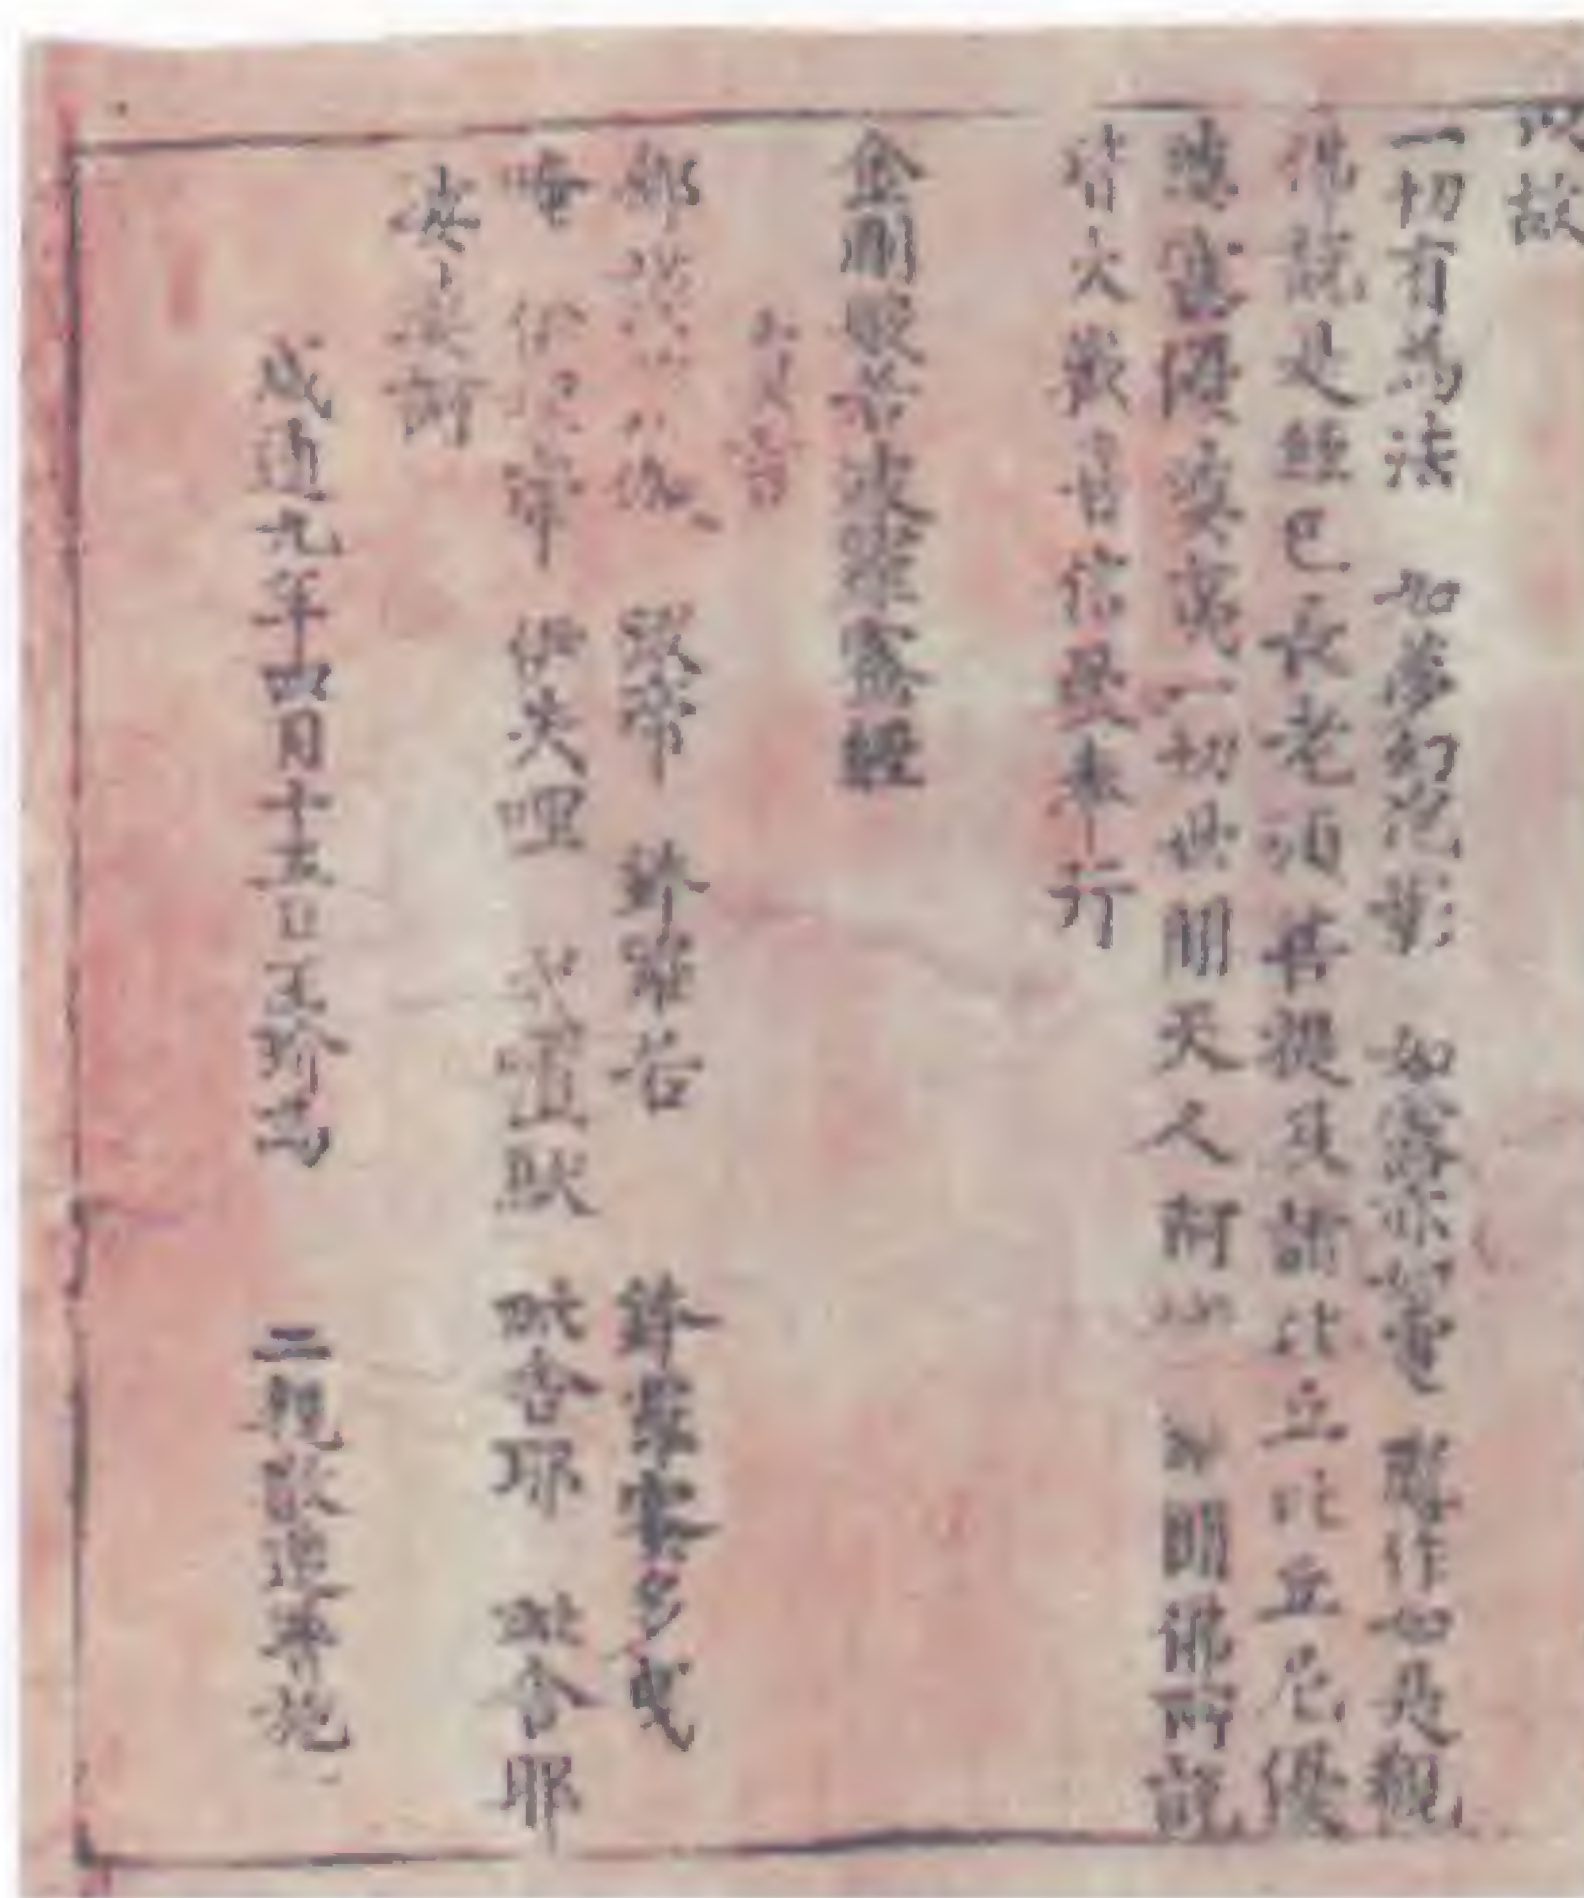 何故
一切有為法 如夢幻泡影 如露亦如電 應作如是觀
佛說是經已長老須菩提及諸比丘比丘尼優
婆塞優婆夷一切世間天人阿 聞佛所說
皆大歡喜信受奉行
金剛般若波羅蜜經
真言
那 帝 鉢羅若 鉢羅蜜多曳
唵 伊 帝 伊失哩 戍嚧馱 毗舍耶 毗舍耶
莎訶
咸通九年四月十五日王玠為 二親敬造普施